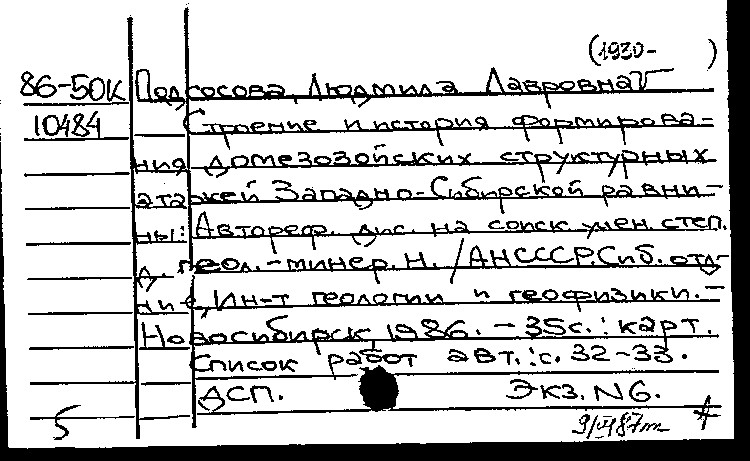 (1930- )
86-50К Подсосова, Людмила Лавровна
10484 Строение и история формирова-
ния домезозойских структурных
этажей Западно-Сибирской равни-
ны: Автореф. дис. на соиск. учен. степ.
д. геол.-минер. н. /АН СССР. Сиб. отд-
ние, Ин-т геологии и геофизики.-
Новосибирск, 1986. - 35с. : карт.
Список работ авт.: с. 32-33.
ДСП. Экз. N6.
5